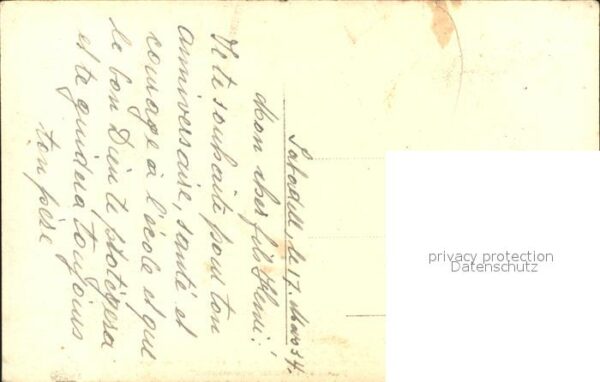 le 17. Mars 34.
Mon cher fils Henri!
Je te souhaite pour ton
anniversaire, santé et
courage à l'école et que
le bon Dieu te protègera
et te guidera toujours
ton père
privacy protection
Datenschutz